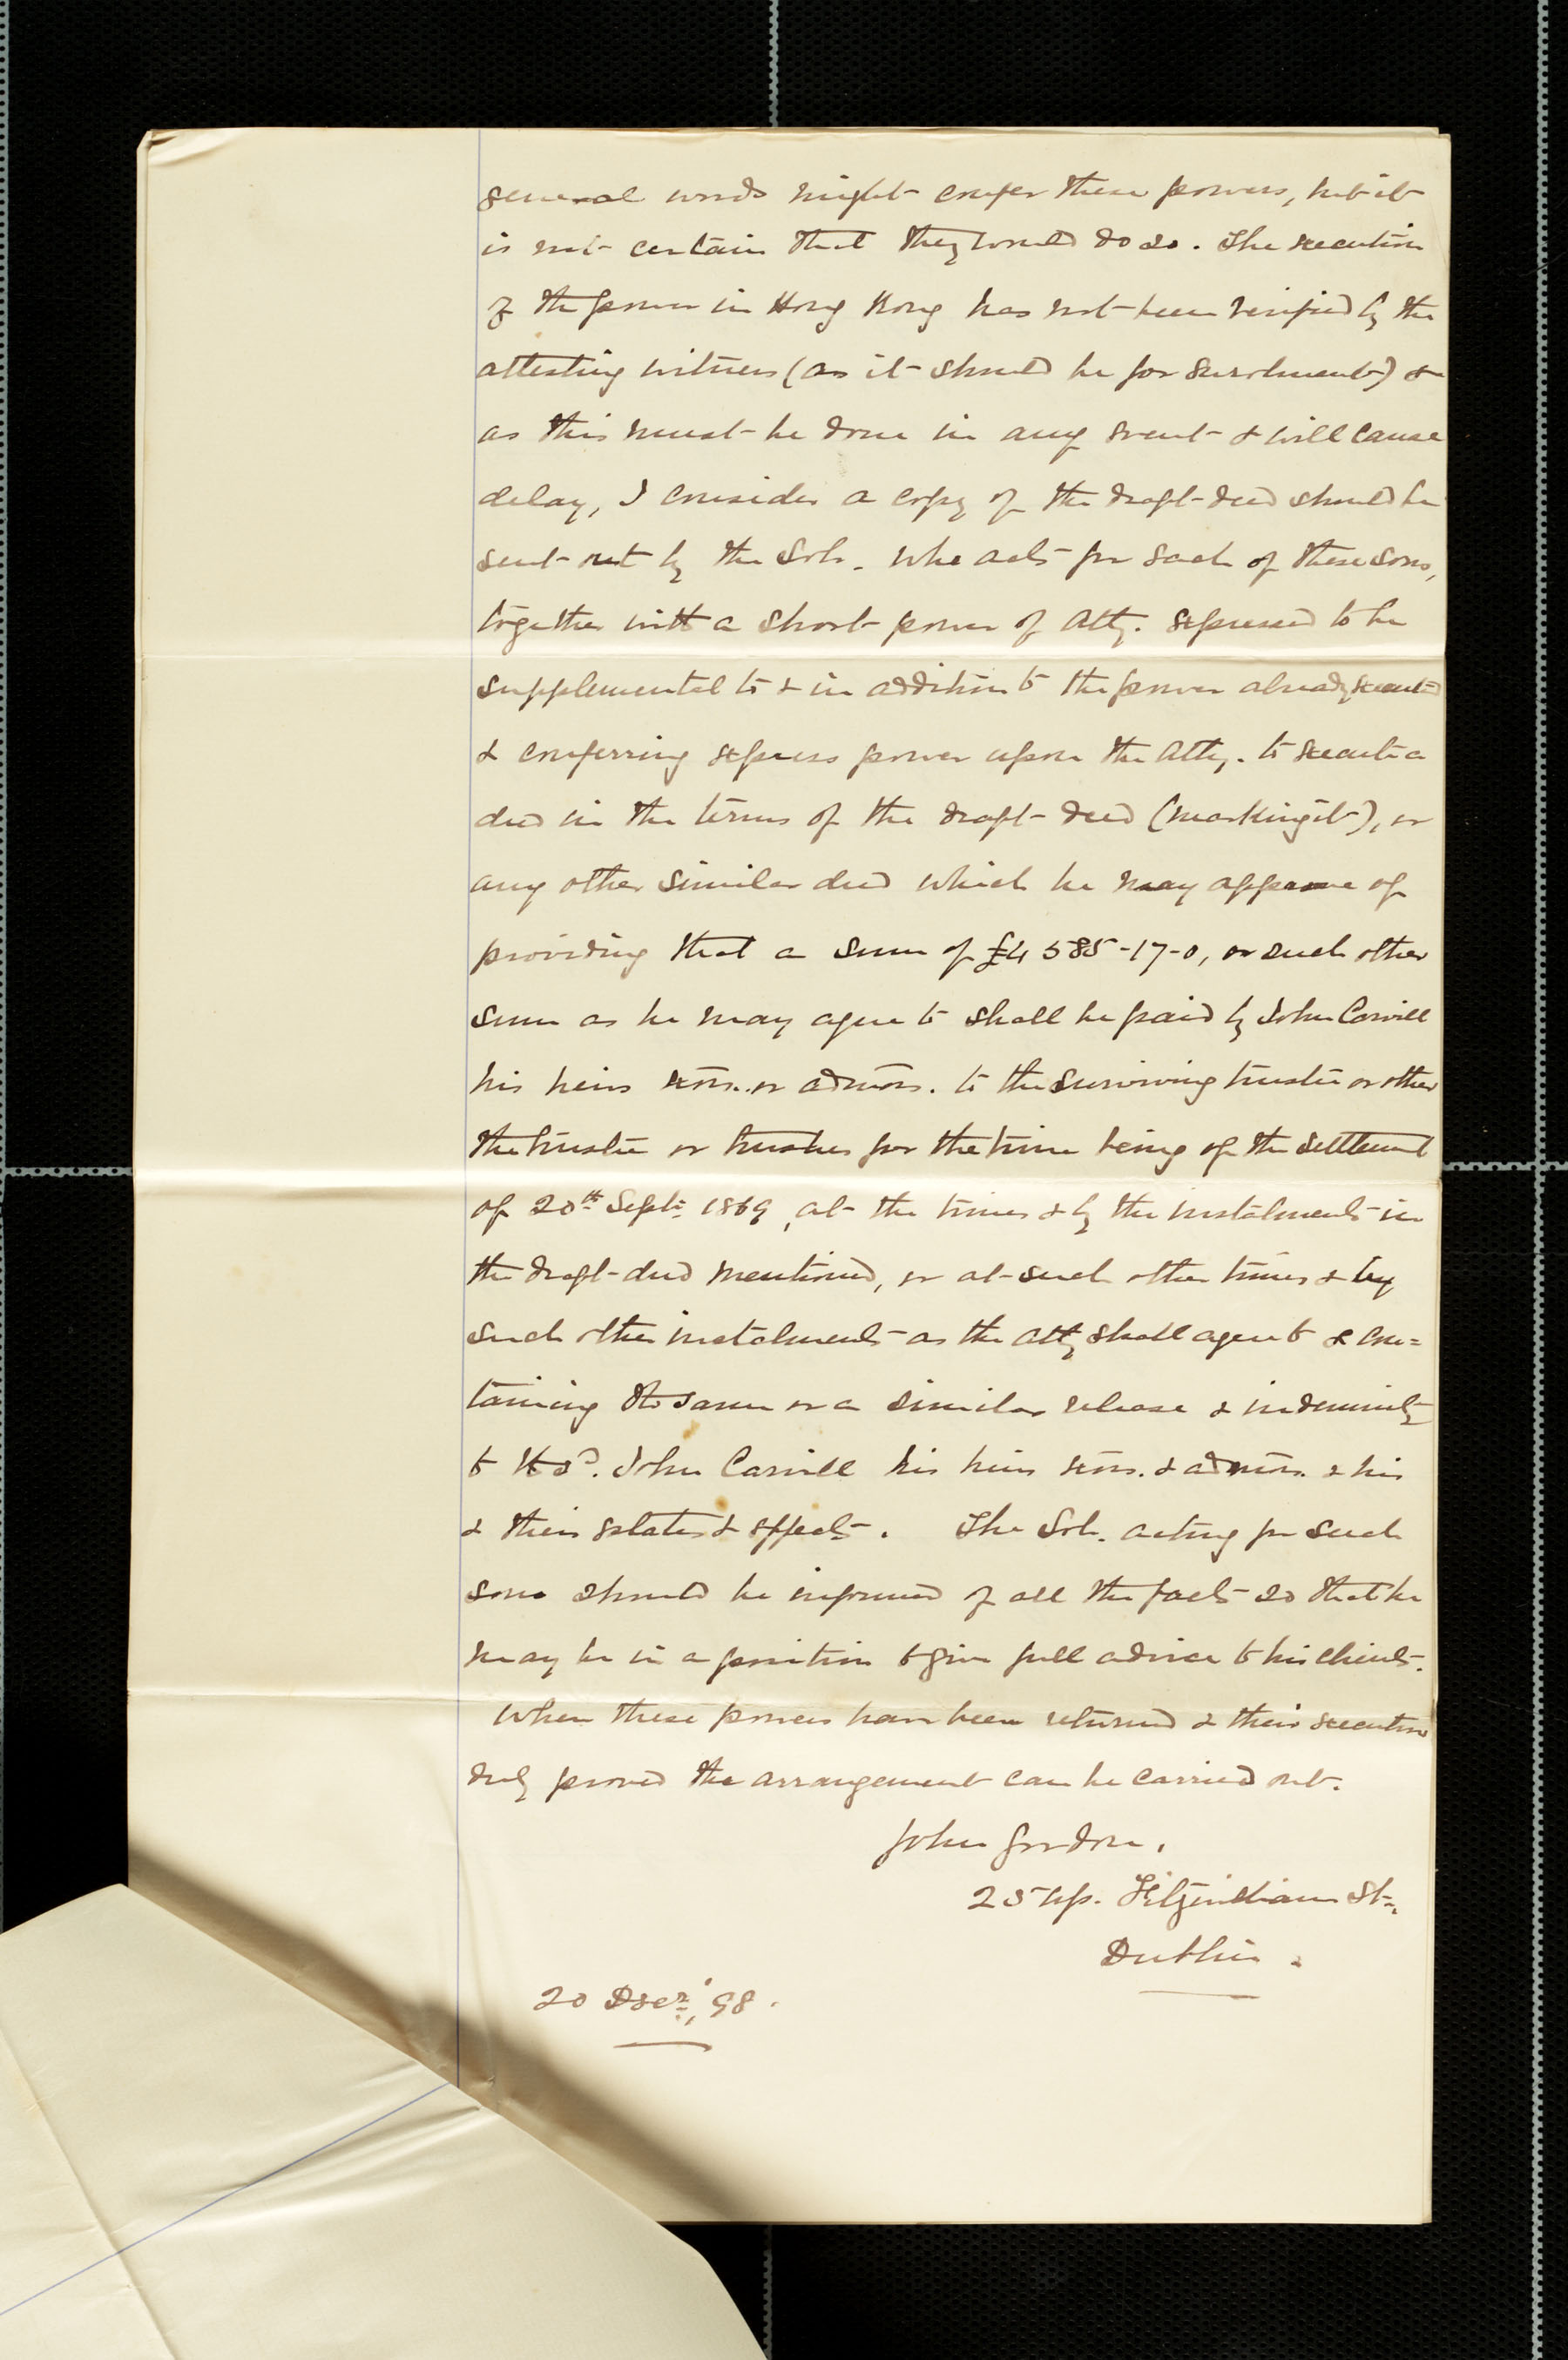 general words might confer these powers, but it
is not certain that they would do so. The execution
of the power in Hong Kong has not been verified by the
attesting witness (as it should be for enrolment) &
as this must be done in any event & will cause
delay, I consider a copy of the draft deed should be
sent out by the Solr. who acts for each of these sons,
together with a short power of Atty. expressed to be
supplemental to & in addition to the power already executed
& conferring express power upon the Atty. to execute a
deed in the terms of the draft deed (marking it), or
any other similar deed which he may approve of
providing that a sum of £4585-17-0, or such other
sum as he may agree to shall be paid by John Carvill
his heirs exors. or admors. to the surviving trustee or other
the trustee or trustees for the time being of the settlement
of 20th Sept. 1869, at the times & by the instalments in
the draft deed mentioned, or at such other times & by
such other instalments as the Atty shall agree to & con=
taining the same or a similar release & indemnity
to the sd. John Carvill his heirs exors. & admors. & his
& their estates & effects. The Solr. acting for such
sons should be informed of all the facts so that he
may be in a position to give full advice to his clients.
When these powers have been returned & their execution
duly proved the arrangement can be carried out.
John Gordon.
25 Up. Fitzwilliam St.,
Dublin.
20 Decr., '98.